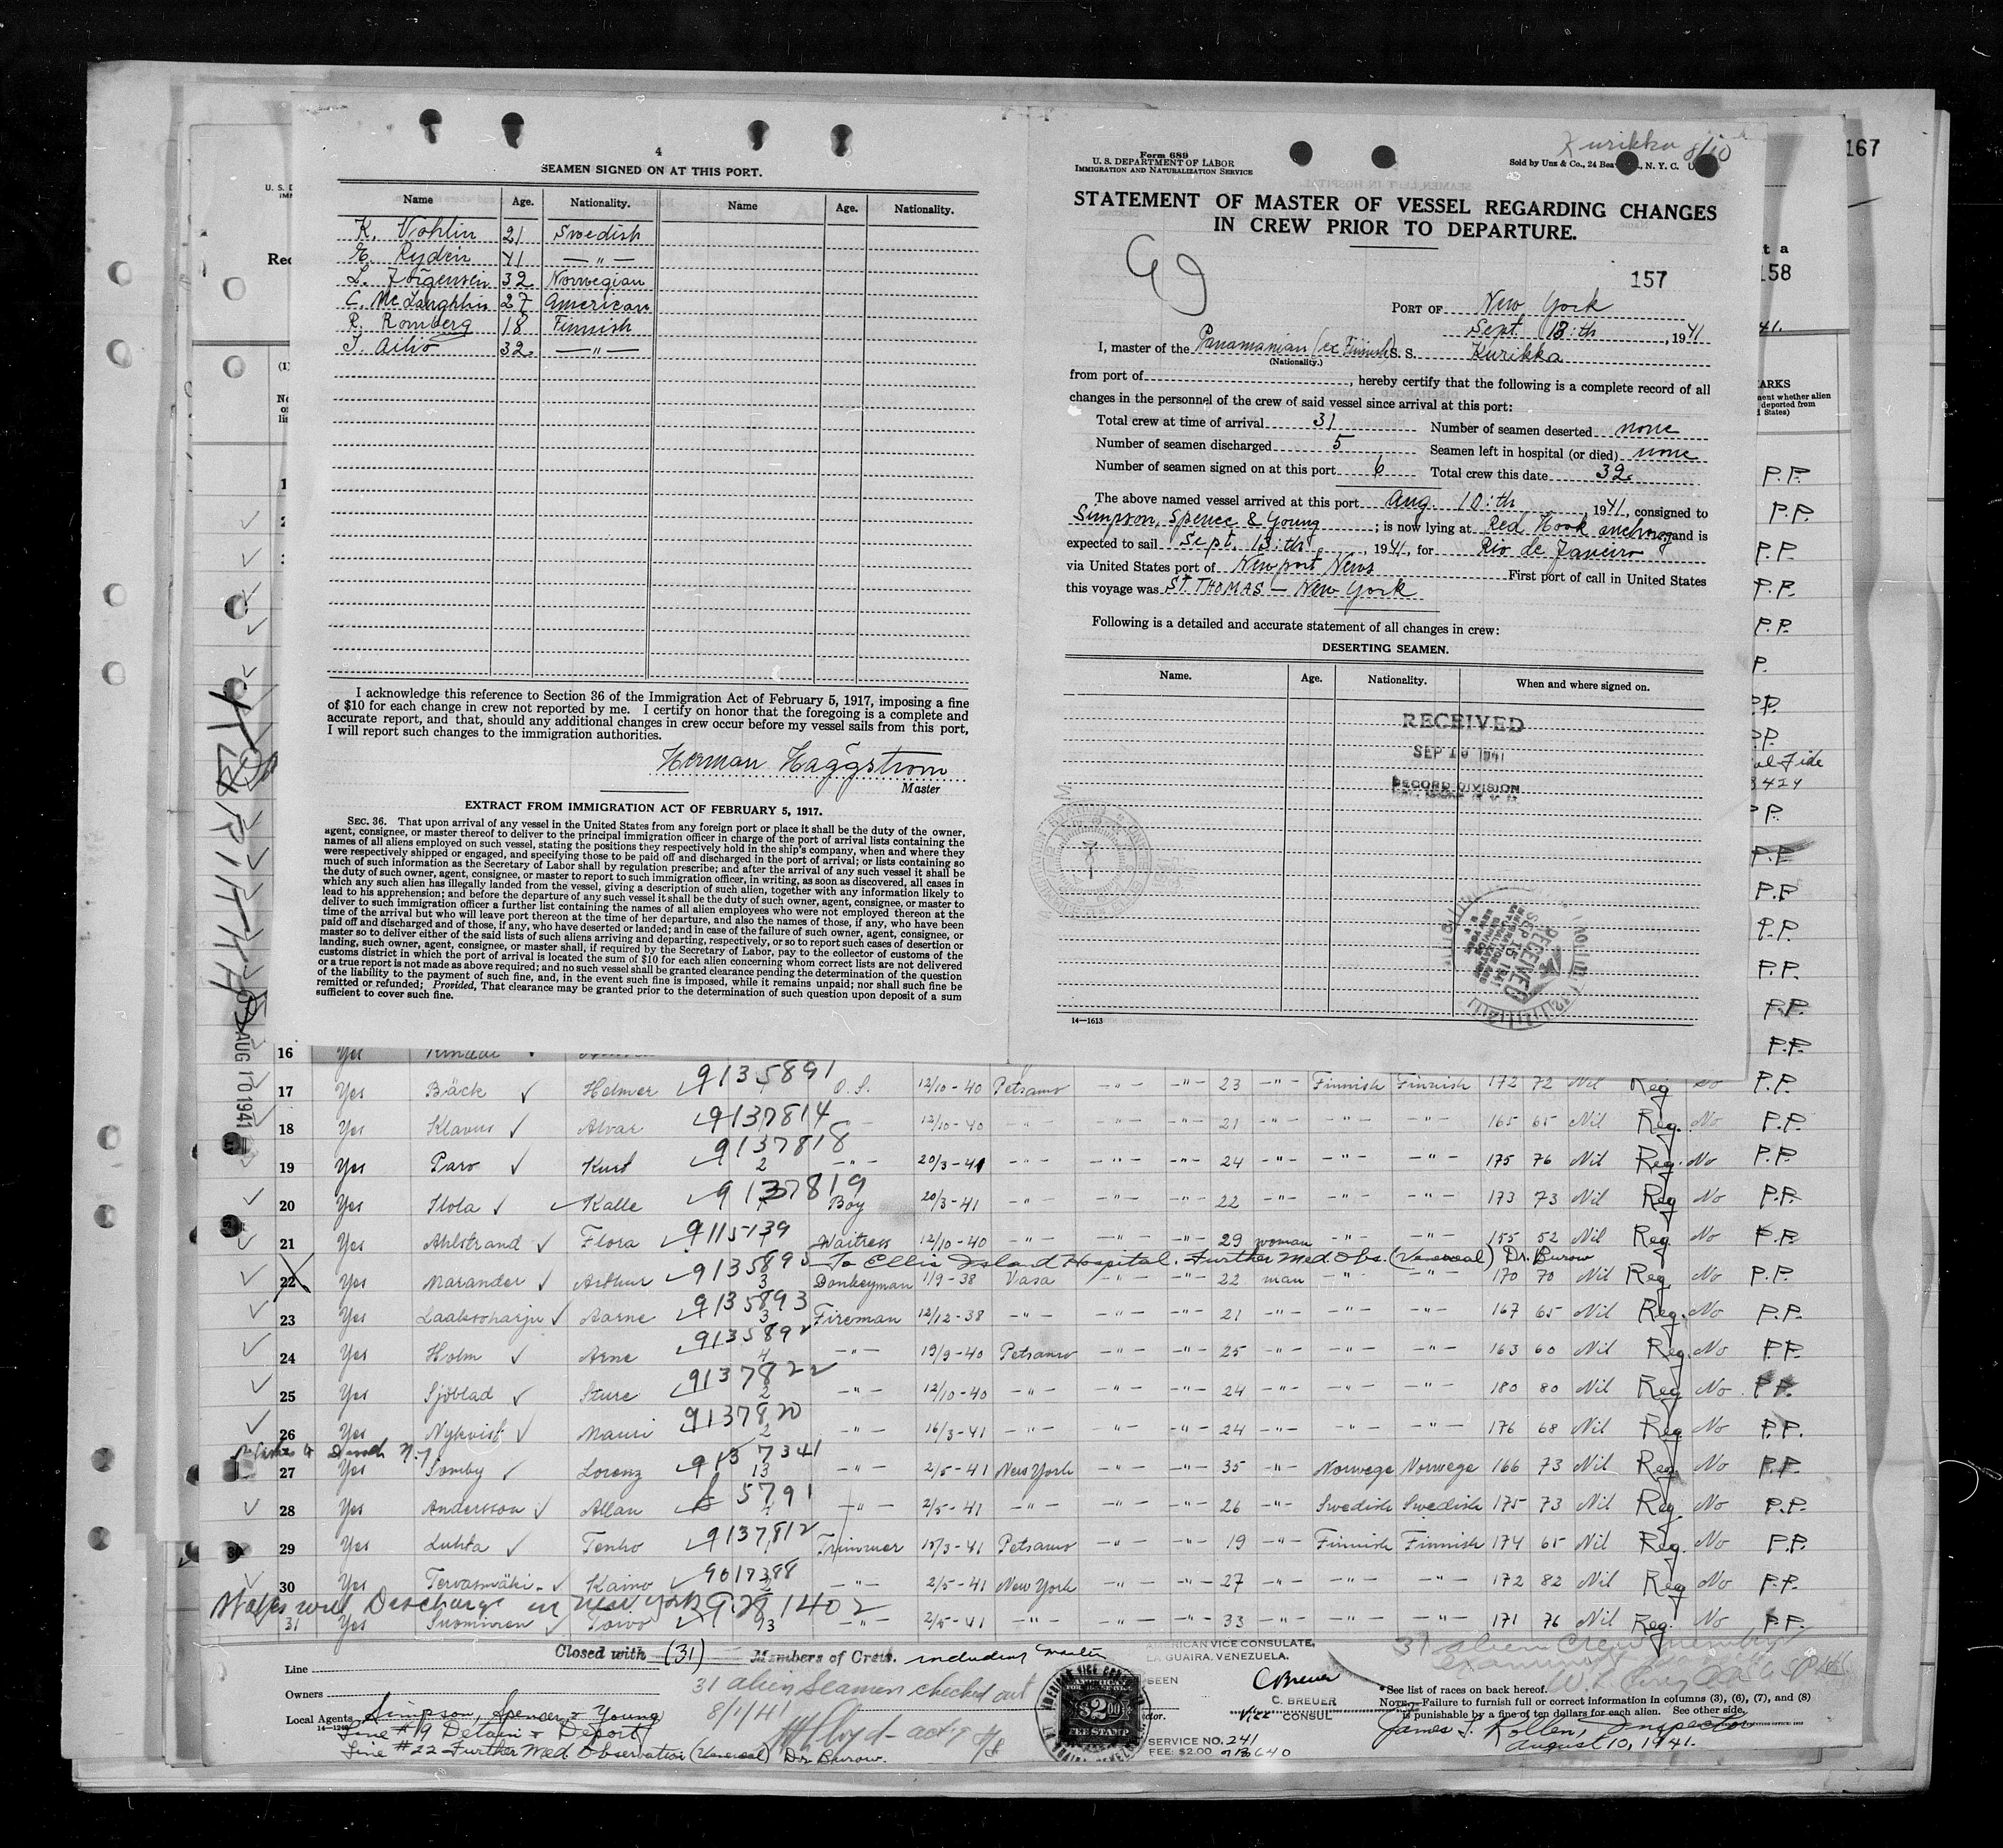 4
SEAMEN SIGNED ON AT THIS PORT.
Name Age. Nationality. Name Age. Nationality.
K. Vohlin 21 Swedish
E. Rydén 41 — " —
L. Jörgensen 32 Norwegian
C. McLaughlin 27 American
R. Romberg 18 Finnish
J. Ailio 32. — " —
I acknowledge this reference to Section 36 of the Immigration Act of February 5, 1917, imposing a fine
of $10 for each change in crew not reported by me. I certify on honor that the foregoing is a complete and
accurate report, and that, should any additional changes in crew occur before my vessel sails from this port,
I will report such changes to the immigration authorities.
Herman Häggström
Master
EXTRACT FROM IMMIGRATION ACT OF FEBRUARY 5, 1917.
SEC. 36. That upon arrival of any vessel in the United States from any foreign port or place it shall be the duty of the owner,
agent, consignee, or master thereof to deliver to the principal immigration officer in charge of the port of arrival lists containing the
names of all aliens employed on such vessel, stating the positions they respectively hold in the ship's company, when and where they
were respectively shipped or engaged, and specifying those to be paid off and discharged in the port of arrival; or lists containing so
much of such information as the Secretary of Labor shall by regulation prescribe; and after the arrival of any such vessel it shall be
the duty of such owner, agent, consignee, or master to report to such immigration officer, in writing, as soon as discovered, all cases in
which any such alien has illegally landed from the vessel, giving a description of such alien, together with any information likely to
lead to his apprehension; and before the departure of any such vessel it shall be the duty of such owner, agent, consignee, or master to
deliver to such immigration officer a further list containing the names of all alien employees who were not employed thereon at the
time of the arrival but who will leave port thereon at the time of her departure, and also the names of those, if any, who have been
paid off and discharged and of those, if any, who have deserted or landed; and in case of the failure of such owner, agent, consignee, or
master so to deliver either of the said lists of such aliens arriving and departing, respectively, or so to report such cases of desertion or
landing, such owner, agent, consignee, or master shall, if required by the Secretary of Labor, pay to the collector of customs of the
customs district in which the port of arrival is located the sum of $10 for each alien concerning whom correct lists are not delivered
or a true report is not made as above required; and no such vessel shall be granted clearance pending the determination of the question
of the liability to the payment of such fine, and, in the event such fine is imposed, while it remains unpaid; nor shall such fine be
remitted or refunded; Provided, That clearance may be granted prior to the determination of such question upon deposit of a sum
sufficient to cover such fine.
Kurikka 8/10
167
Form 689
U. S. DEPARTMENT OF LABOR
IMMIGRATION AND NATURALIZATION SERVICE
Sold by Unz & Co., 24 Bea , N. Y. C.
STATEMENT OF MASTER OF VESSEL REGARDING CHANGES
IN CREW PRIOR TO DEPARTURE.
157
158
PORT OF New York
Sept. 13:th, 1941
I, master of the Panamanian (ex Finnish) S. S. Kurikka
(Nationality.)
from port of , hereby certify that the following is a complete record of all
changes in the personnel of the crew of said vessel since arrival at this port:
Total crew at time of arrival 31 Number of seamen deserted none
Number of seamen discharged 5 Seamen left in hospital (or died) none
Number of seamen signed on at this port 6 Total crew this date 32.
The above named vessel arrived at this port Aug. 10:th, 1941, consigned to
Simpson, Spence & Young ; is now lying at Red Hook anchorag and is
expected to sail Sept. 13:th, 1941, for Rio de Janeiro
via United States port of Newport News First port of call in United States
this voyage was ST. THOMAS — New York
Following is a detailed and accurate statement of all changes in crew:
DESERTING SEAMEN.
Name. Age. Nationality. When and where signed on.
RECEIVED
SEP 1941
RECORD DIVISION
RECEIVED
SEP 15 1941
14—1613
AUG 10 1941
16 Yes
17 Yes Bäck Helmer 9135891 O.S. 12/10-40 Petsamo — " — — " — 23 — " — Finnish Finnish 172 72 Nil Reg No P.P.
18 Yes Klavus Alvar 9137814 12/10-40 — " — — " — — " — 21 — " — — " — — " — 165 65 Nil Reg. No P.P.
19 Yes Paro Kurt 9137818 2 — " — 20/3-41 — " — — " — — " — 24 — " — — " — — " — 175 76 Nil Reg. No P.P.
20 Yes Ilola Kalle 9137819 Boy 20/3-41 — " — — " — — " — 22 — " — — " — 173 73 Nil Reg No P.P.
21 Yes Ahlstrand Flora 9115139 Waitress 12/10-40 — " — — " — — " — 29 woman — " — — " — 155 52 Nil Reg No P.P.
To Ellis Island Hospital. Further Med. Obs. (Venereal) Dr. Burow
22 Yes Marander Arthur 9135895 3 Donkeyman 1/9-38 Vasa — " — — " — 22 man — " — — " — 170 70 Nil Reg No P.P.
23 Yes Laaksoharju Aarne 9135893 3 Fireman 12/12-38 — " — — " — — " — 21 — " — — " — — " — 167 65 Nil Reg. No P.P.
24 Yes Holm Arne 9135892 4 — " — 19/9-40 Petsamo — " — — " — 25 — " — — " — — " — 163 60 Nil Reg. No P.P.
25 Yes Sjöblad Sture 9137822 2 — " — 12/10-40 — " — — " — — " — 24 — " — — " — — " — 180 80 Nil Reg No P.P.
26 Yes Nykvist Mauri 9137820 2 — " — 16/3-41 — " — — " — — " — 24 — " — — " — — " — 176 68 Nil Reg No P.P.
27 Yes Tomby Lorenz 9137341 13 — " — 2/5-41 New York — " — — " — 35 — " — Norwege Norwege 166 73 Nil Reg No P.P.
28 Yes Andersson Allan 5791 — " — 2/5-41 — " — — " — — " — 26 — " — Swedish Swedish 175 73 Nil Reg No P.P.
29 Yes Luhta Tenho 9137812 Trimmer 15/3-41 Petsamo — " — — " — 19 — " — Finnish Finnish 174 65 Nil Reg. No P.P.
30 Yes Tervasmäki Kaino 9017388 2 — " — 2/5-41 New York — " — — " — 27 — " — — " — — " — 172 82 Nil Reg No P.P.
will Discharge in New York 9291402
31 Yes Suominen Toivo 13 — " — 2/5-41 — " — — " — — " — 33 — " — — " — — " — 171 76 Nil Reg. No P.P.
Closed with (31) Members of Crew. including master
31 alien seamen checked out
Line
Owners
Local Agents Simpson, Spence & Young
Line #19 Detain & Deport
Line #22 Further Med. Observation (Venereal) Dr. Burow.
AMERICAN VICE CONSULATE,
LA GUAIRA, VENEZUELA.
SEEN
C Breuer
C. BREUER
Vice CONSUL
$2.00
FEE STAMP
SERVICE NO. 241
FEE: $2.00
31 alien crew members
*See list of races on back hereof.
NOTE.—Failure to furnish full or correct information in columns (3), (6), (7), and (8)
is punishable by a fine of ten dollars for each alien. See other side.
James J. Kollen, Inspector
August 10, 1941.